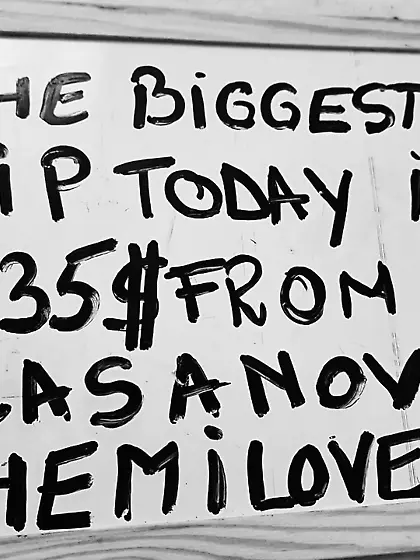 HE BIGGEST
iP TODAY i
35$ FROM
CASANOV
HEMiLOVE